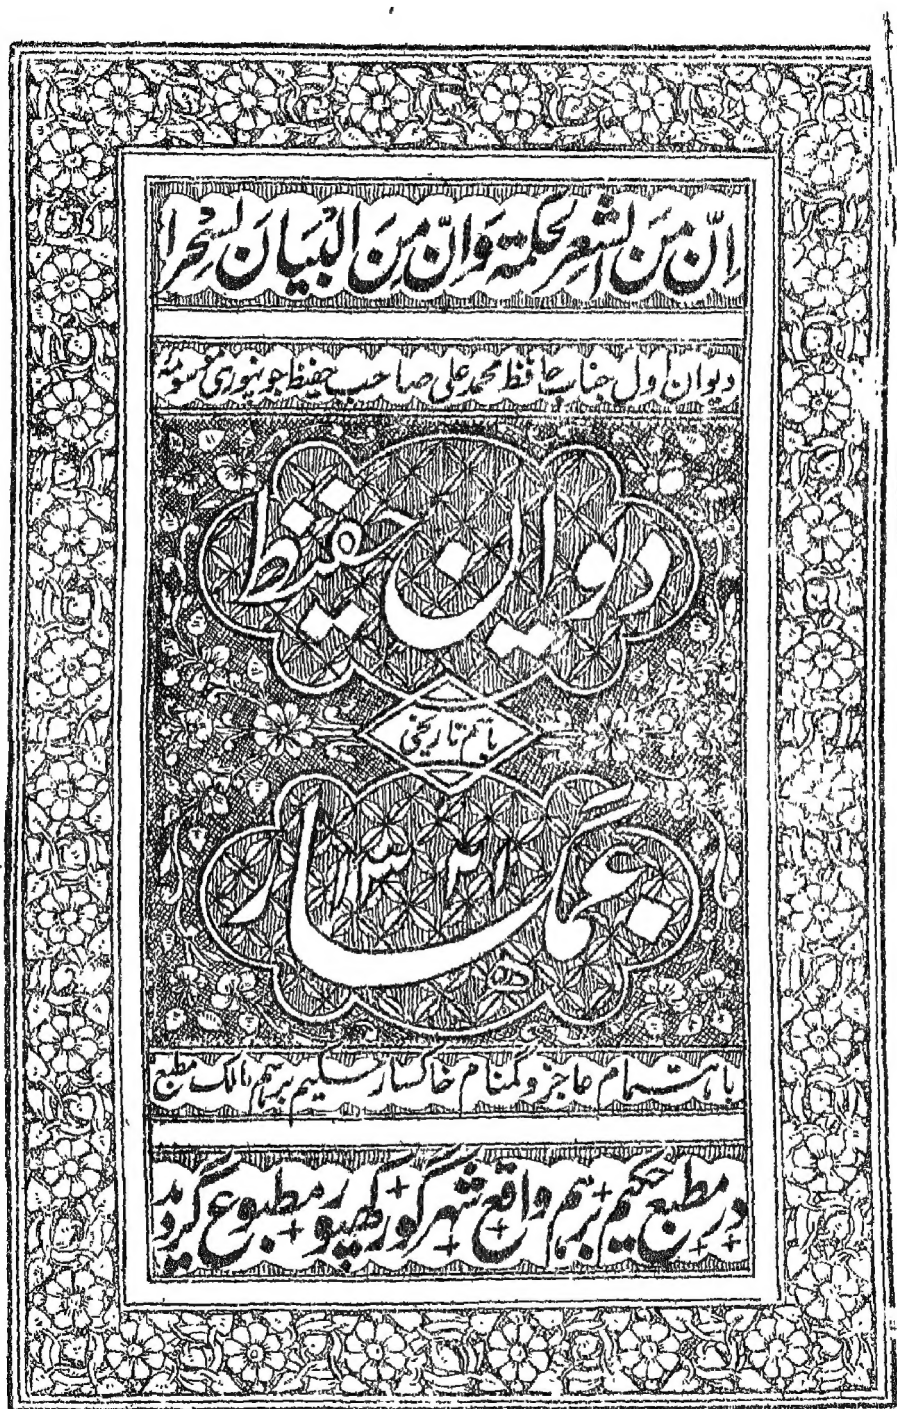 اِنَّ مِنَ الشِّعْرِ لَحِکْمَۃً وَاِنَّ مِنَ الْبَیَانِ لَسِحْرًا
دیوان اول جناب حافظ محمد علی صاحب حفیظ جونپوری موسومہ
دیوان حفیظ
باسم تاریخی
غمگسار
۱۳۲۱ھ
باہتمام عاجز و گمنام خاکسار حکیم برہم مالک مطبع
در مطبع حکیم برہم واقع شہر گورکھپور مطبوع گردید